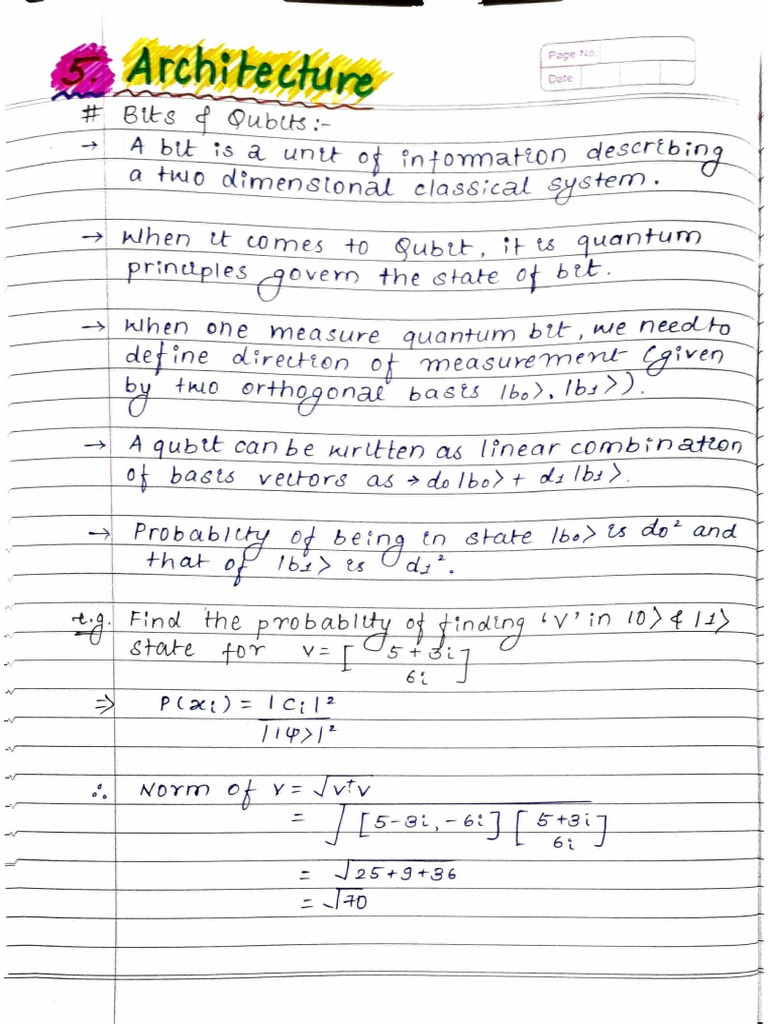 5. Architecture
Page No.
Date
# Bits & Qubits:-
→ A bit is a unit of information describing
a two dimensional classical system.
→ When it comes to Qubit, it is quantum
principles govern the state of bit.
→ When one measure quantum bit, we need to
define direction of measurement (given
by two orthogonal basis |b₀⟩, |b₁⟩).
→ A qubit can be written as linear combination
of basis vectors as → d₀|b₀⟩ + d₁|b₁⟩.
→ Probablity of being in state |b₀⟩ is d₀² and
that of |b₁⟩ is d₁².
e.g. Find the probablity of finding 'V' in |0⟩ & |1⟩
state for V = [ 5+3i ]
6i
⇒ P(xi) = |Ci|²
||ψ⟩|²
∴ Norm of V = √V†V
= √[5-3i, -6i] [ 5+3i ]
6i
= √25+9+36
= √70